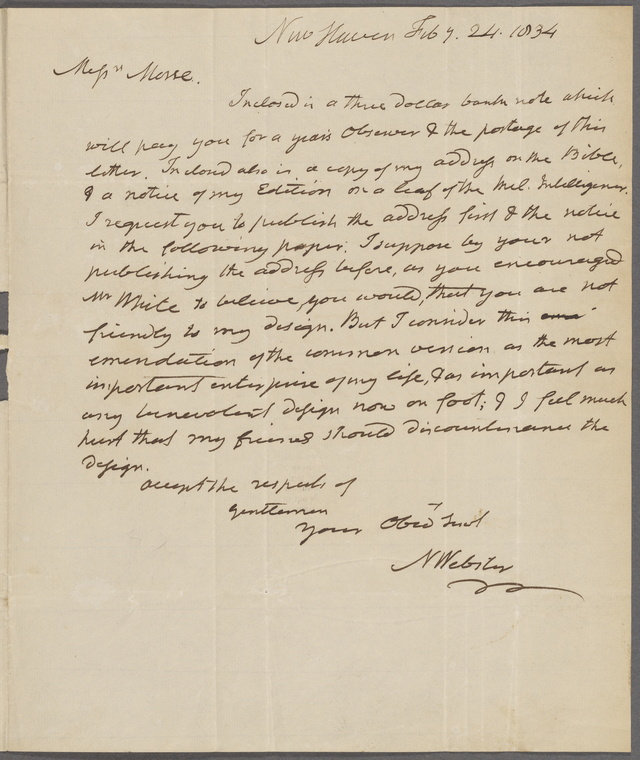 New Haven Feby. 24. 1834
Messrs Morse.
Inclosed is a three dollar bank note which
will pay you for a years Observer & the postage of this
letter. Inclosed also is a copy of my address on the Bible,
& a notice of my Edition on a leaf of the Rel. Intelligencer.
I request you to publish the address first & the notice
in the following paper. I suppose by your not
publishing the address before, as you encouraged
Mr White to believe you would, that you are not
friendly to my design. But I consider this
emendation of the common version as the most
important enterprise of my life, & as important as
any benevolent design now on foot; & I feel much
hurt that my friends should discountenance the
design.
accept the respects of
gentlemen
your Obed Servt
N Webster